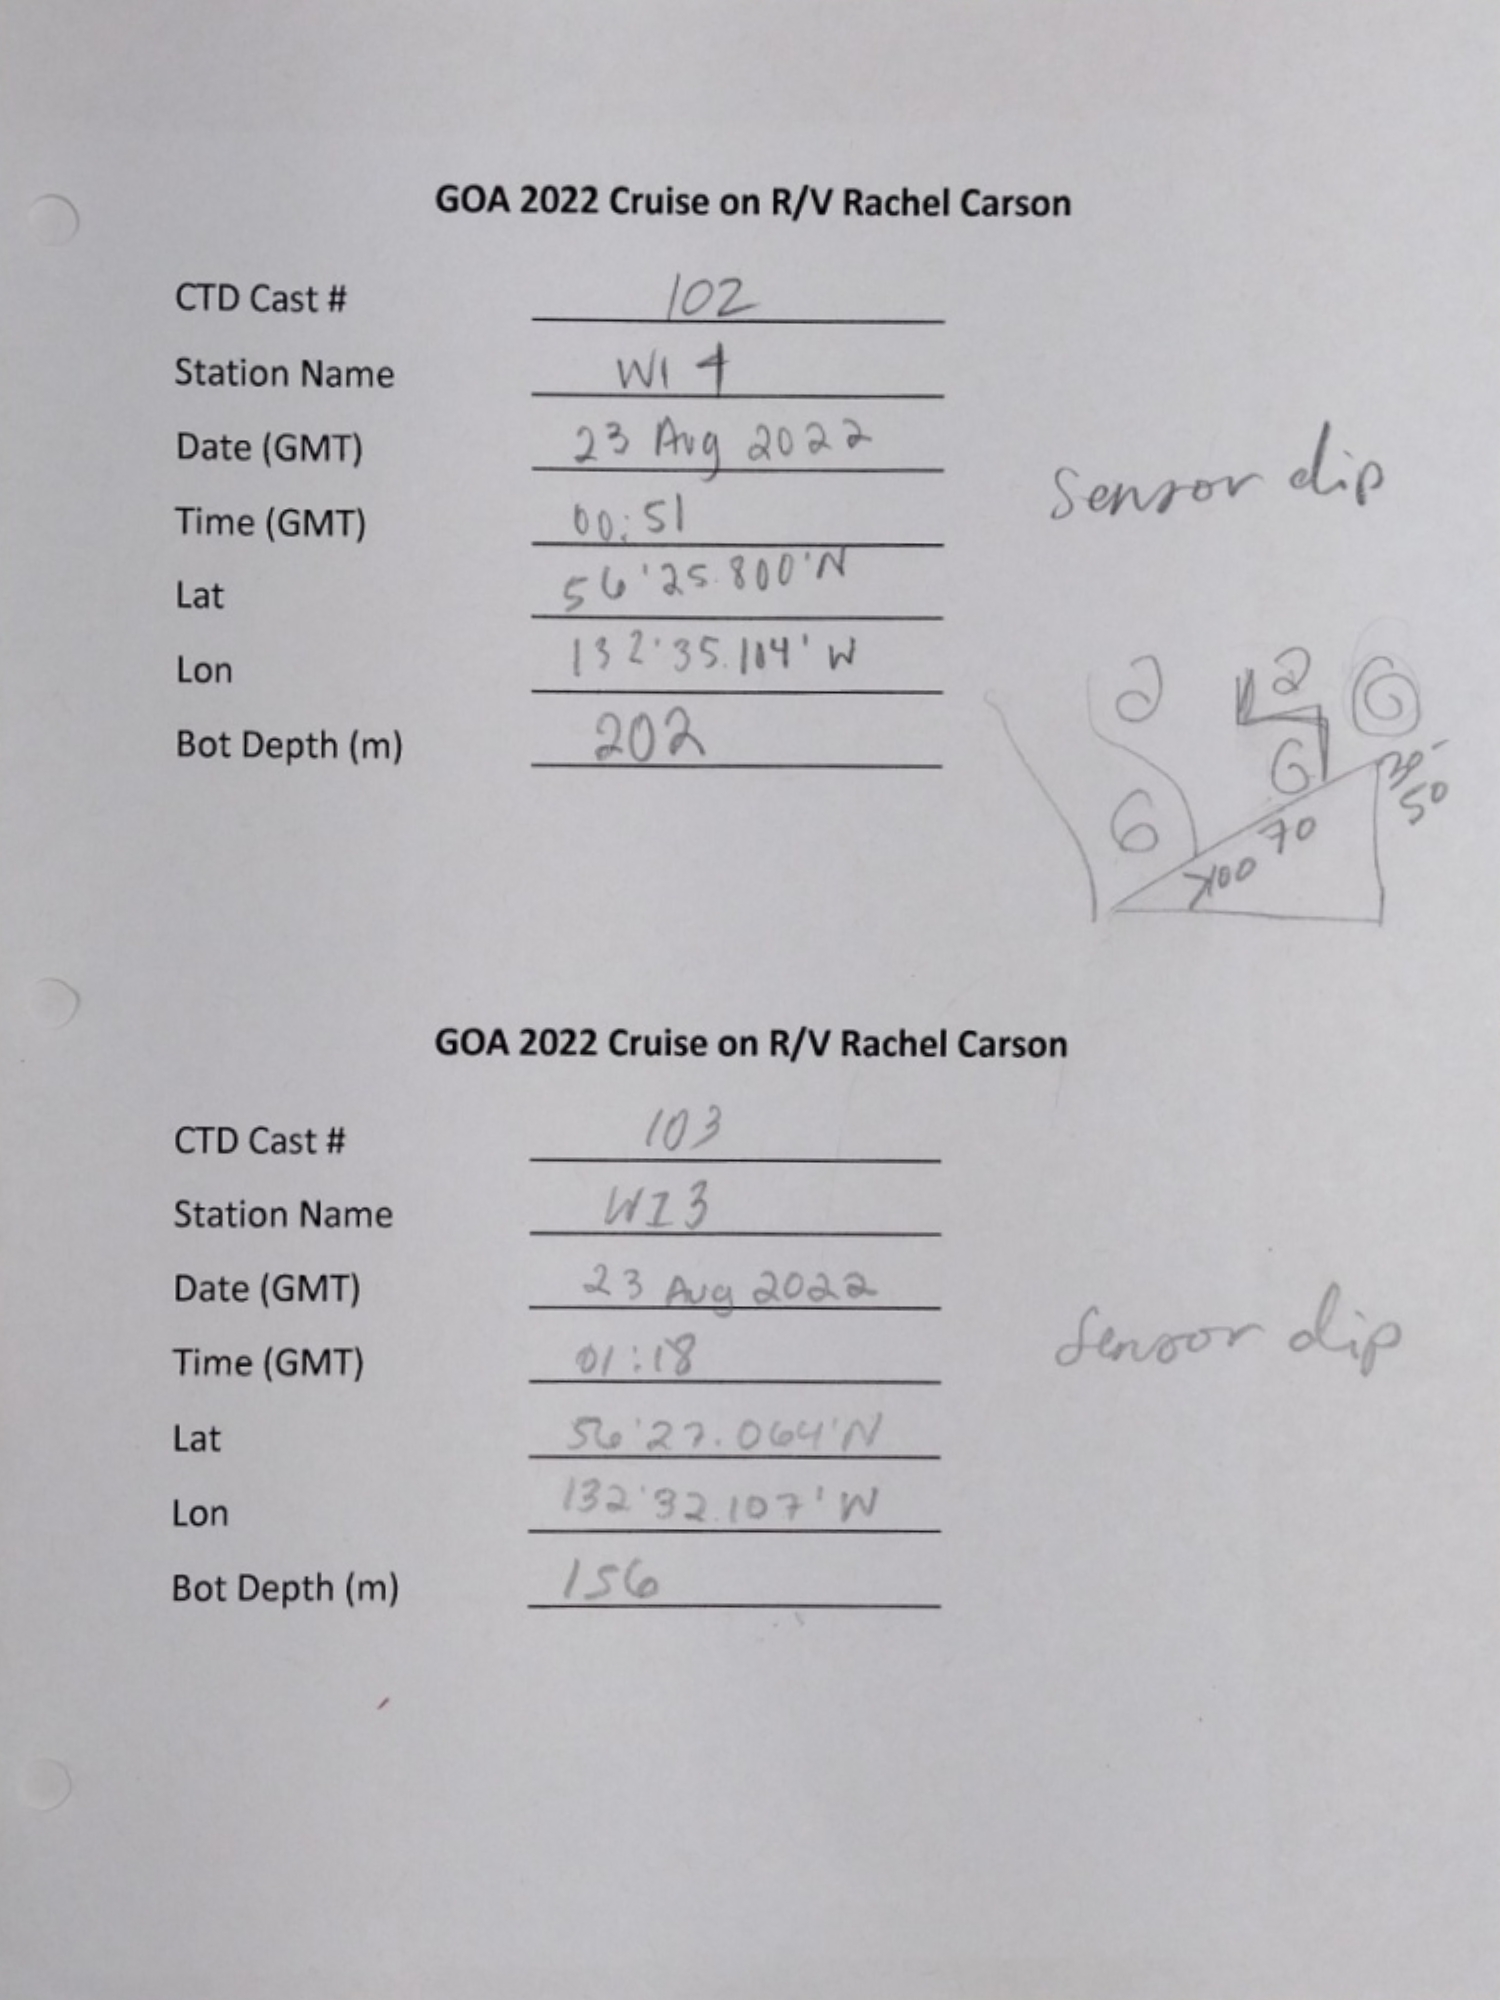 GOA 2022 Cruise on R/V Rachel Carson
CTD Cast # 102
Station Name WI 4
Date (GMT) 23 Aug 2022
Time (GMT) 00:51
Lat 56'25.800'N
Lon 132'35.114'W
Bot Depth (m) 202
Sensor dip
2 2 6
6 6
50
70
100
GOA 2022 Cruise on R/V Rachel Carson
CTD Cast # 103
Station Name WI3
Date (GMT) 23 Aug 2022
Time (GMT) 01:18
Lat 56'27.064'N
Lon 132'32.107'W
Bot Depth (m) 156
Sensor dip